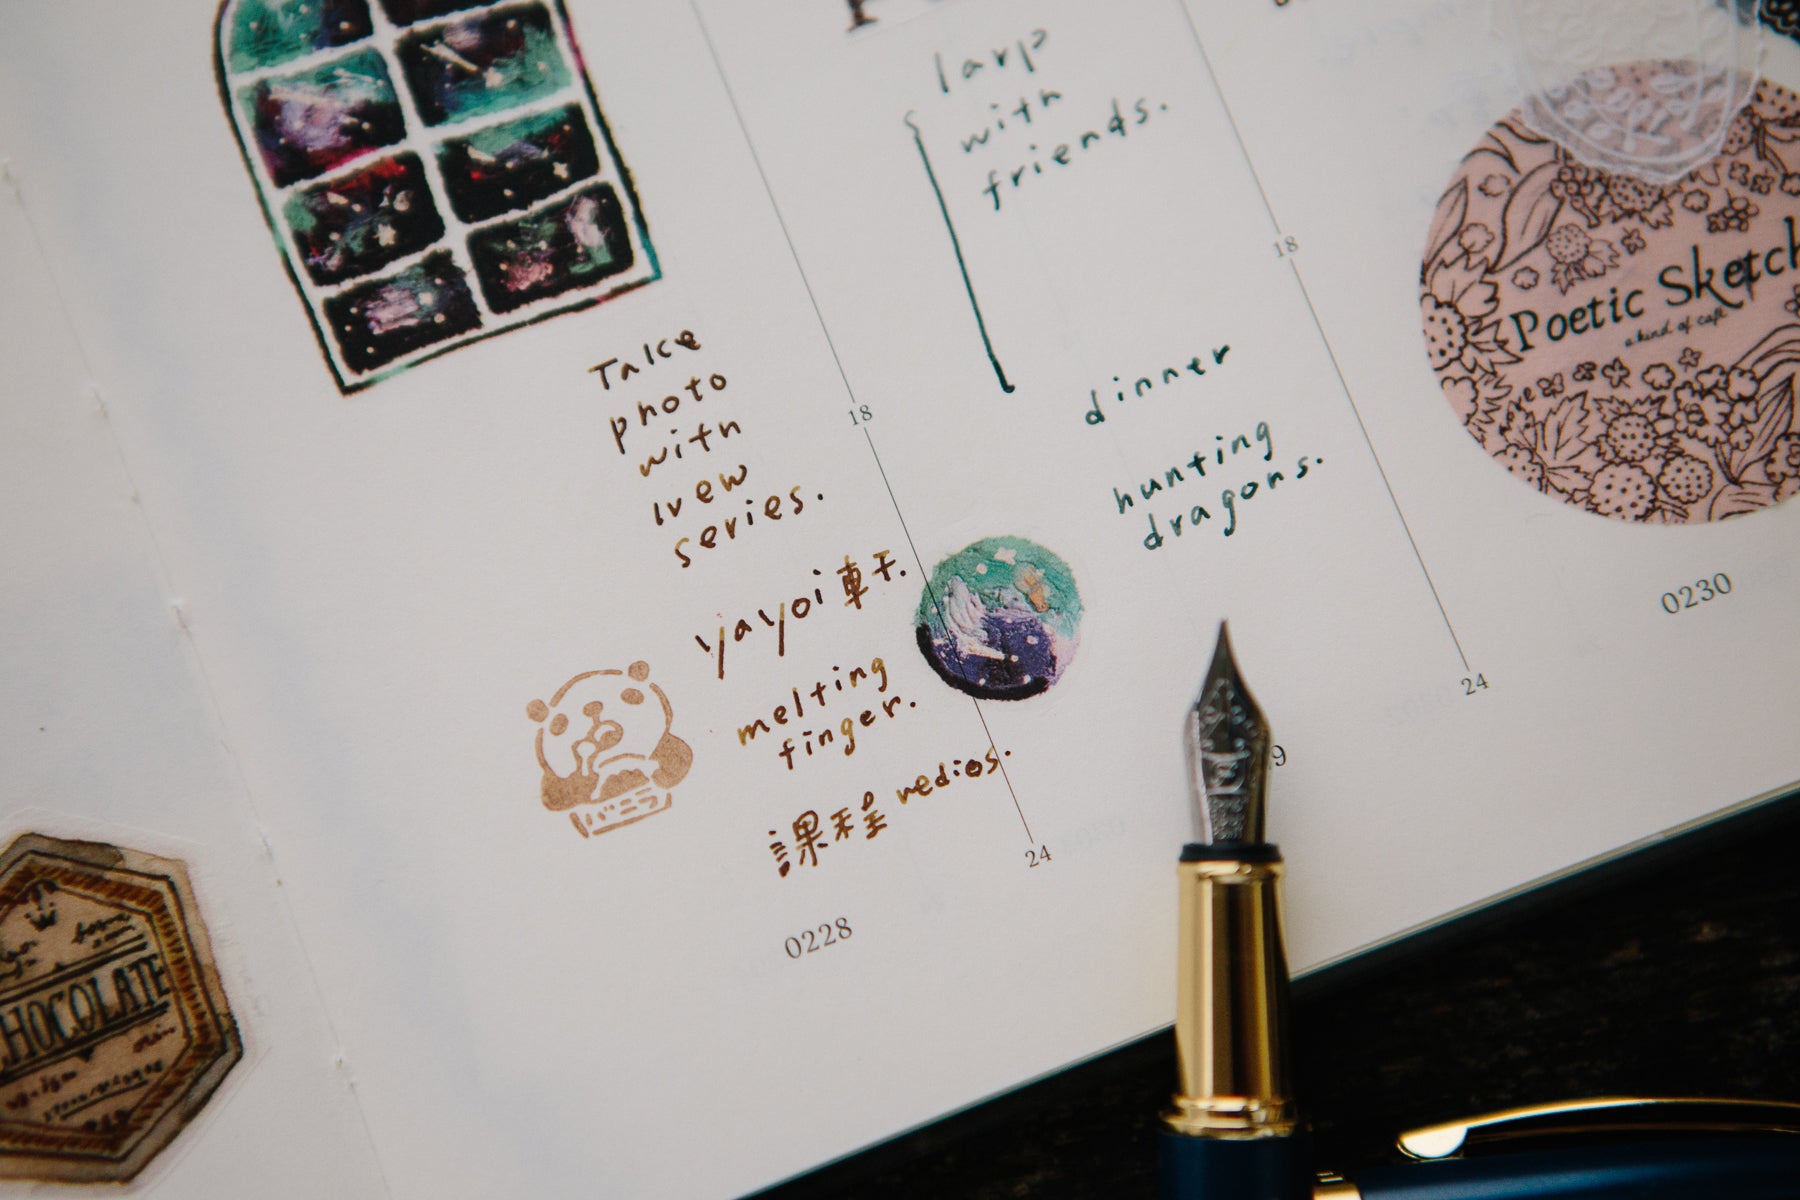 Take
photo
with
new
series.
18
yayoi 軒.
melting
finger.
課程 redios.
バニラ
24
0228
larp
with
friends.
18
dinner
hunting
dragons.
24
9
Poetic Sketch
a kind of cafe
0230
HOCOLATE